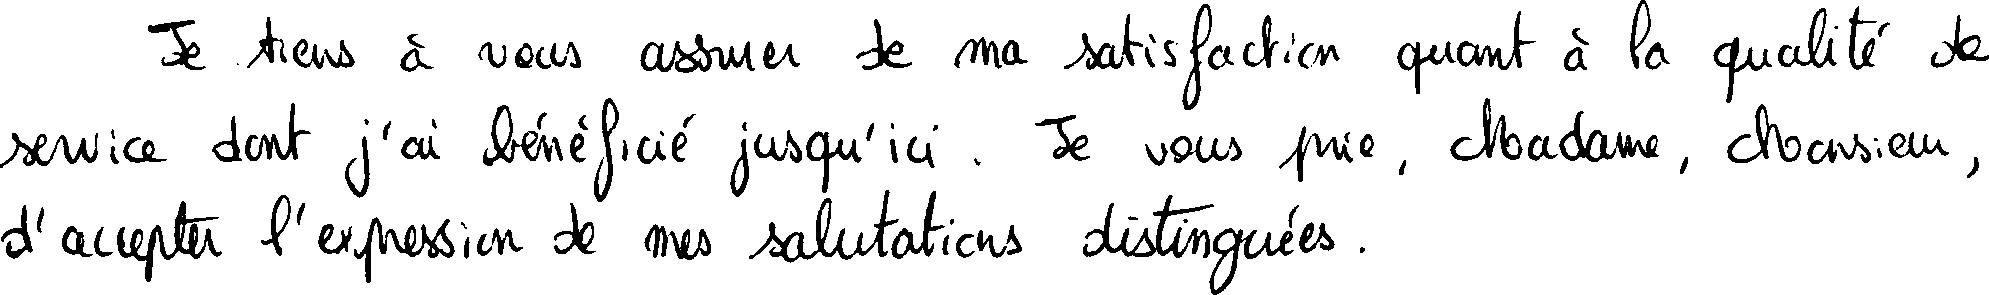 Je tiens à vous assurer de ma satisfaction quant à la qualité de
service dont j'ai bénéficié jusqu'ici. Je vous prie, Madame, Monsieur,
d'accepter l'expression de mes salutations distinguées.